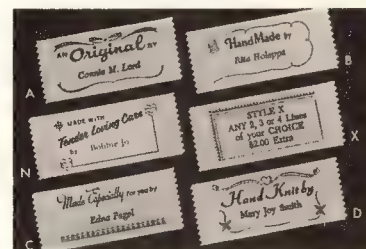 AN Original BY
Connie M. Lord
A
HandMade by
Rita Holappa
B
MADE WITH
Tender Loving Care
by Bobbie Jo
N
STYLE X
ANY 2, 3 or 4 Lines
of your CHOICE
$2.00 Extra
X
Made Especially for you by
Edna Pagel
C
Hand Knit by
Mary Joy Smith
D